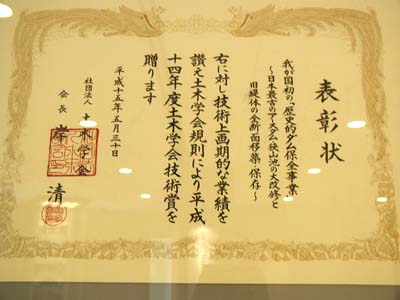 表彰状
我が国初の「歴史的ダム保全事業
～日本最古のアースダム狭山池の大改修と
旧堤体の全断面移築・保存～
右に対し技術上画期的な業績を
讃え土木学会規則により平成
十四年度土木学会技術賞を
贈ります
平成十五年五月三十日
社団法人 土木学会
会長 岸 清